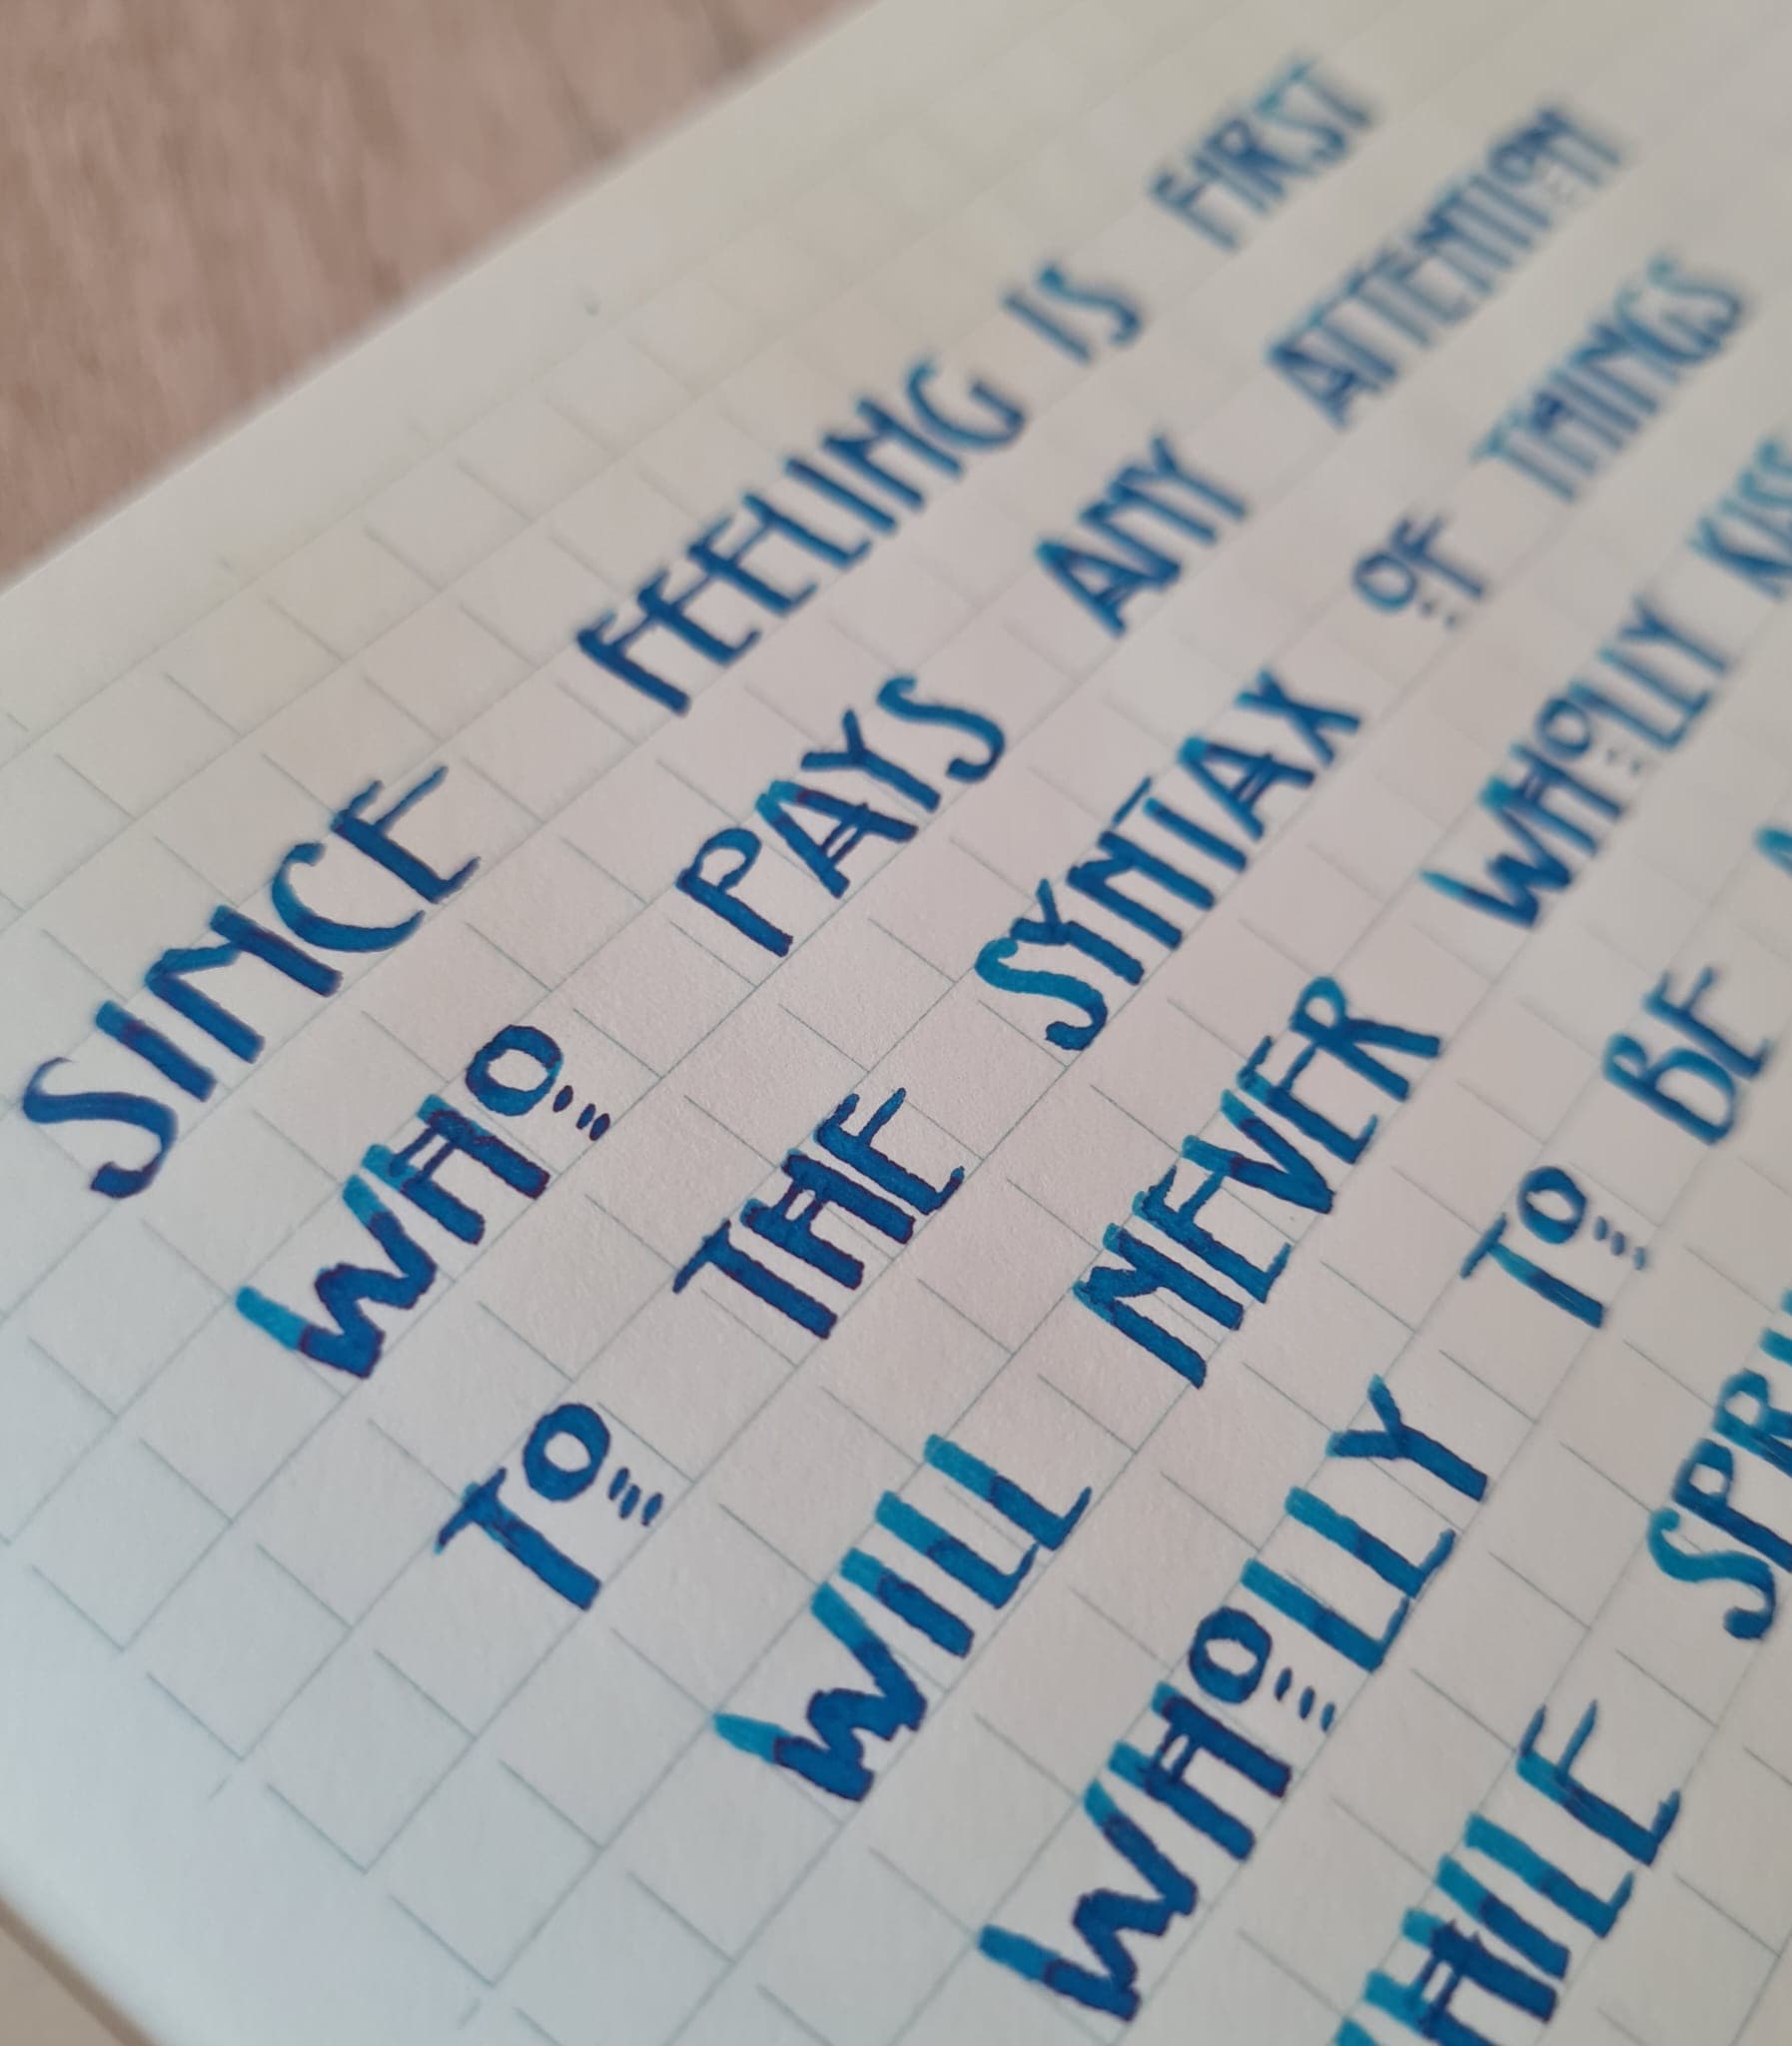 SINCE FEELING IS FIRST
WHO PAYS ANY ATTENTION
TO THE SYNTAX OF THINGS
WILL NEVER WHOLLY
WHOLLY TO BE